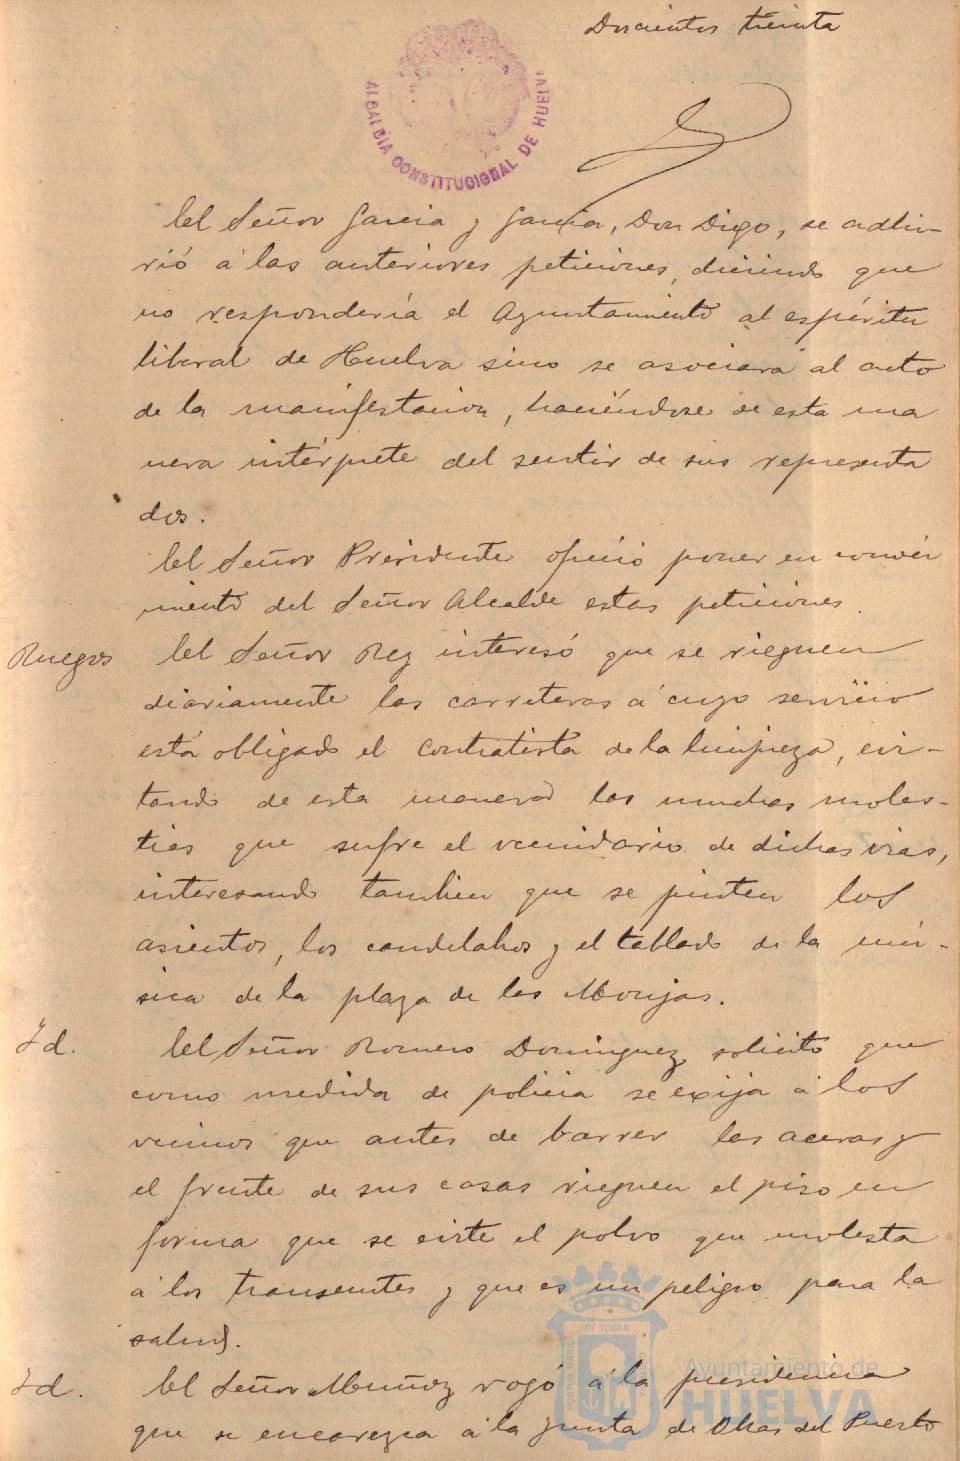 Doscientos treinta
ALCALDÍA CONSTITUCIONAL DE HUELVA
El Señor Garcia y Garcia, Don Diego, se adhi-
rió á las anteriores peticiones, diciendo que
no respondería el Ayuntamiento al espíritu
liberal de Huelva sino se asociara al acto
de la manifestacion, haciéndose de esta ma
nera intérprete del sentir de sus representa
dos.
El Señor Presidente ofreció poner en conoci
miento del Señor Alcalde estas peticiones.
Ruegos
El Señor Rey interesó que se rieguen
diariamente las carreteras á cuyo servicio
está obligado el contratista de la limpieza, evi-
tando de esta manera las muchas moles-
tias que sufre el vecindario de dichas vias,
interesando tambien que se pinten los
asientos, los candelabros y el tablado de la mú-
sica de la plaza de las Monjas.
Id.
El Señor Romero Dominguez solicitó que
como medida de policia se exija á los
vecinos que antes de barrer las aceras y
el frente de sus casas rieguen el piso en
forma que se evite el polvo que molesta
á los transeuntes y que es un peligro para la
salud.
Id.
El Señor Muñoz rogó á la presidencia
que se encarezca á la Junta de Obras del Puerto
Ayuntamiento de
HUELVA